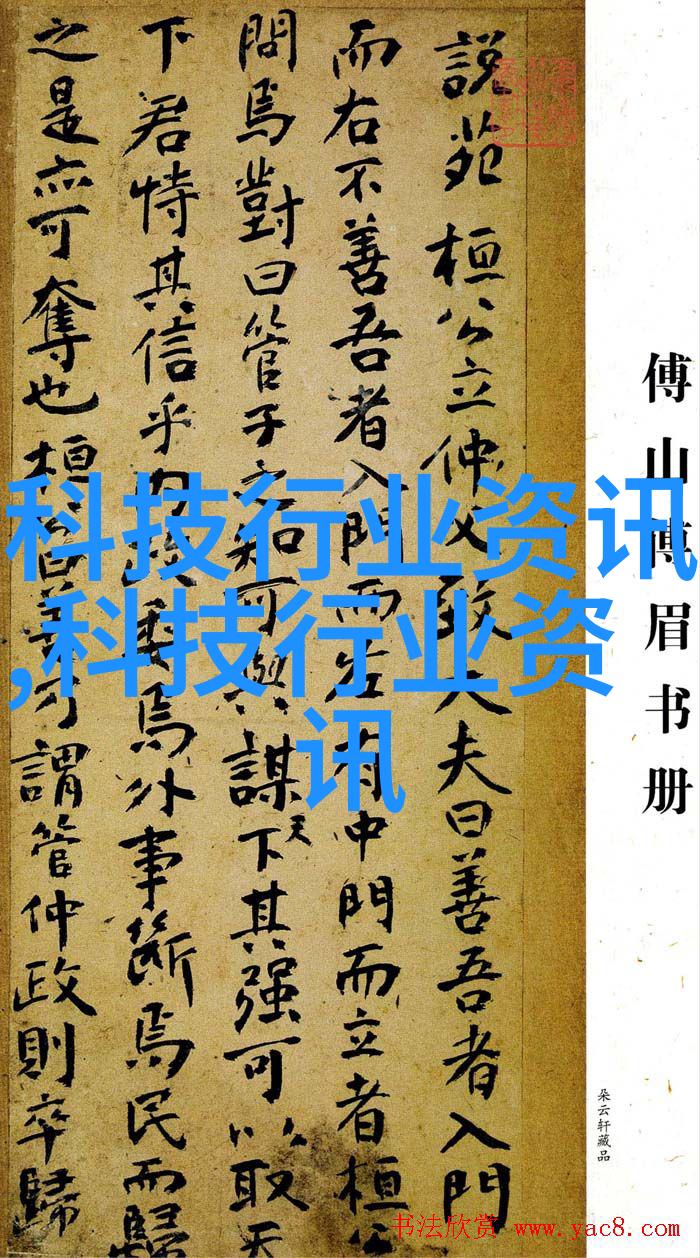 傅山傅眉书册
朵云轩藏品
說苑 桓公立仲父致大夫曰善吾者入門
而右不善吾者入門而左有中門而立者桓公
問焉對曰管子之知可與謀天下其强可以取天
下君恃其信乎内政委焉外事斷焉民而歸
之是亦可奪也桓公曰善乃謂管仲政則卒歸
科技行业资讯
,科技行业资
讯
书法欣赏 www.yac8.com